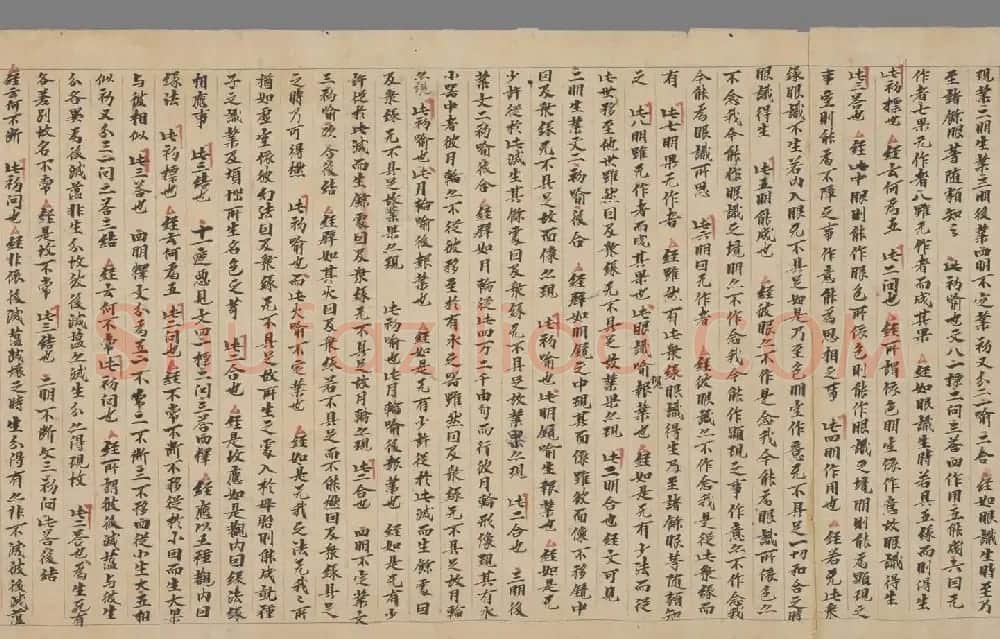 現業二明生業三明後業而明不定業初又分二一喻二合 經如眼識生時至乃
至諸餘眼等隨類知之 此初喻也文八一標二問三答四作用五能成六因无
作者七果无作者八雖无作者而成其果 經如眼識生時若具五緣而則得生
此初標也 經云何為五 此二問也 經所謂依色明空依作意故眼識得生
此三答也 經此中眼則能作眼識所依色則能作眼識之境明則能為顯現之
事空則能為不障之事作意能為思想之事 此四明作用也 經若无此衆
緣眼識不生若內入眼无不具足如是乃至色明空作意无不具足一切和合之時
眼識得生 此五明能成也 經彼眼亦不作是念我今能為眼識所依色亦
不念我今能作眼識之境明亦不作念我今能作顯現之事作意亦不作念我
今能為眼識所思 此六明因无作者 經彼眼識亦不作念我是從此衆緣而
有 此七明果无作者 經雖然有此衆緣眼識得生乃至諸餘眼等隨類知
之 此八明雖无作者而成其果也此眼識喻報業也 經如是无有少法而從
此世移至他世雖然因及衆緣无不具足故業果亦現 此二明合也經文可見
二明生業文二初喻後合 經釋如明鏡之中現其面像雖彼面像不移鏡中
因及衆緣无不具足故而像亦現 此初喻也此明鏡喻生報業也 經如是无
少許從於此滅生其餘處因及衆緣无不具足故業果亦現 此二合也 三明後
業文二初喻後合 經釋如月輪從此四万二千由旬而行彼月輪形像現其有水
小器中者彼月輪亦不從彼移至於有水之器雖然因及衆緣无不具足故月輪
亦現 此初喻也此月輪喻後報業也 經如是无有少許從於此滅而生餘處因
及衆緣无不具足故業果亦現 此初喻也此月輪喻後報業也 經如是无有少
許從於此滅而生餘處因及衆緣无不具足故月輪亦現 此二合也 四明不定業文
三初喻次合後結 經釋如其火因及衆緣若不具足而不能燃因及衆緣具足
之時乃可得燃 此初喻也而此火喻不定業也 經如是无我之法无我々所
猶如虛空依彼幻法因及衆緣无不具足故所生之處入於母胎則能成就種
子之識業及煩惱所生名色之芽 此二合也 經是故應如是觀內因緣法緣
相應事 此三結也 十一遮惡見文四一標二問三答四釋 經應以五種觀內因
緣法 此初標也 經云何為五 此二問也 經不常不斷不移從於小因而生大果
與彼相似 此三答也 四明釋文分為五一不常二不斷三不移四從小生大五相
似初又分三一問二答三結 經云何不常 此初問也 經所謂彼後滅蘊與彼生
分各異為後滅蘊非生分故然後滅蘊亦滅生分亦得現故 此二答也為生死有
各差別故名不常 經是故不常 此三結也 二明不斷文三初問次答後結
經云何不斷 此初問也 經非依後滅蘊滅壞之時生分得有亦非不滅彼後滅蘊